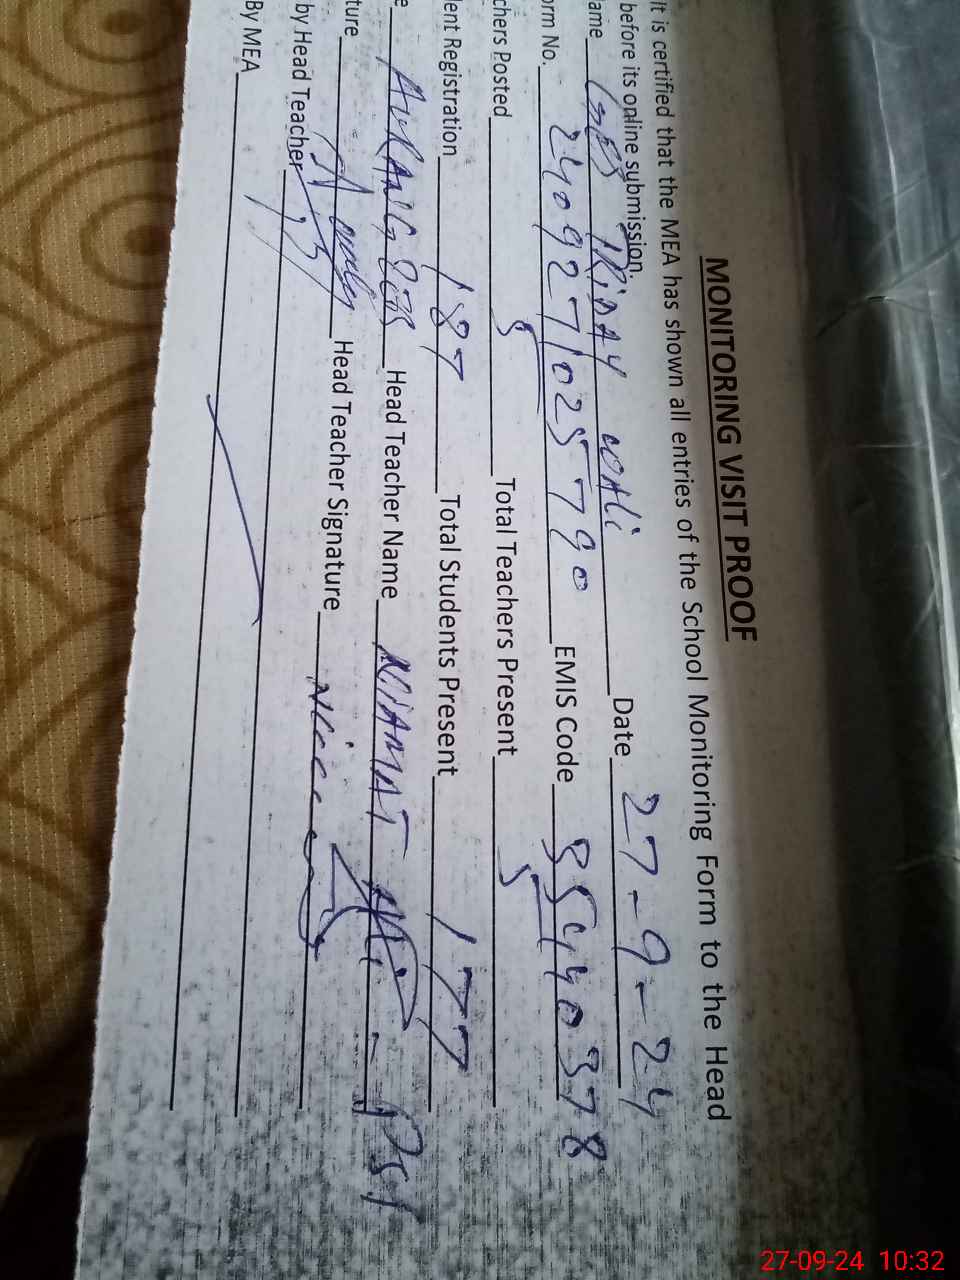 MONITORING VISIT PROOF
It is certified that the MEA has shown all entries of the School Monitoring Form to the Head
before its online submission.
ame GBS Date 27-9-24
orm No. 2409271025790 EMIS Code 35440378
chers Posted 5 Total Teachers Present 5
lent Registration 187 Total Students Present 177
e AURANGZEB Head Teacher Name NIAMAT - PST
ture Head Teacher Signature
by Head Teacher
By MEA
27-09-24 10:32